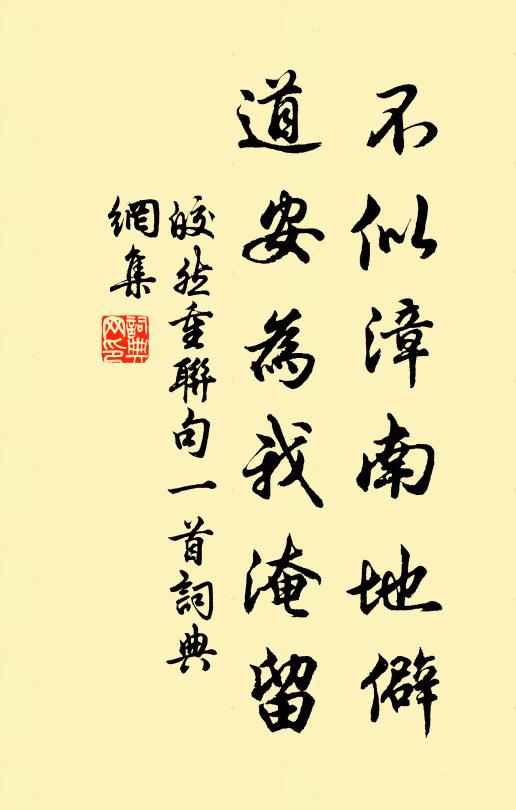 不似漳南地僻
道安為我淹留
皎然重聯句一首詞典
網集
詞典
网印